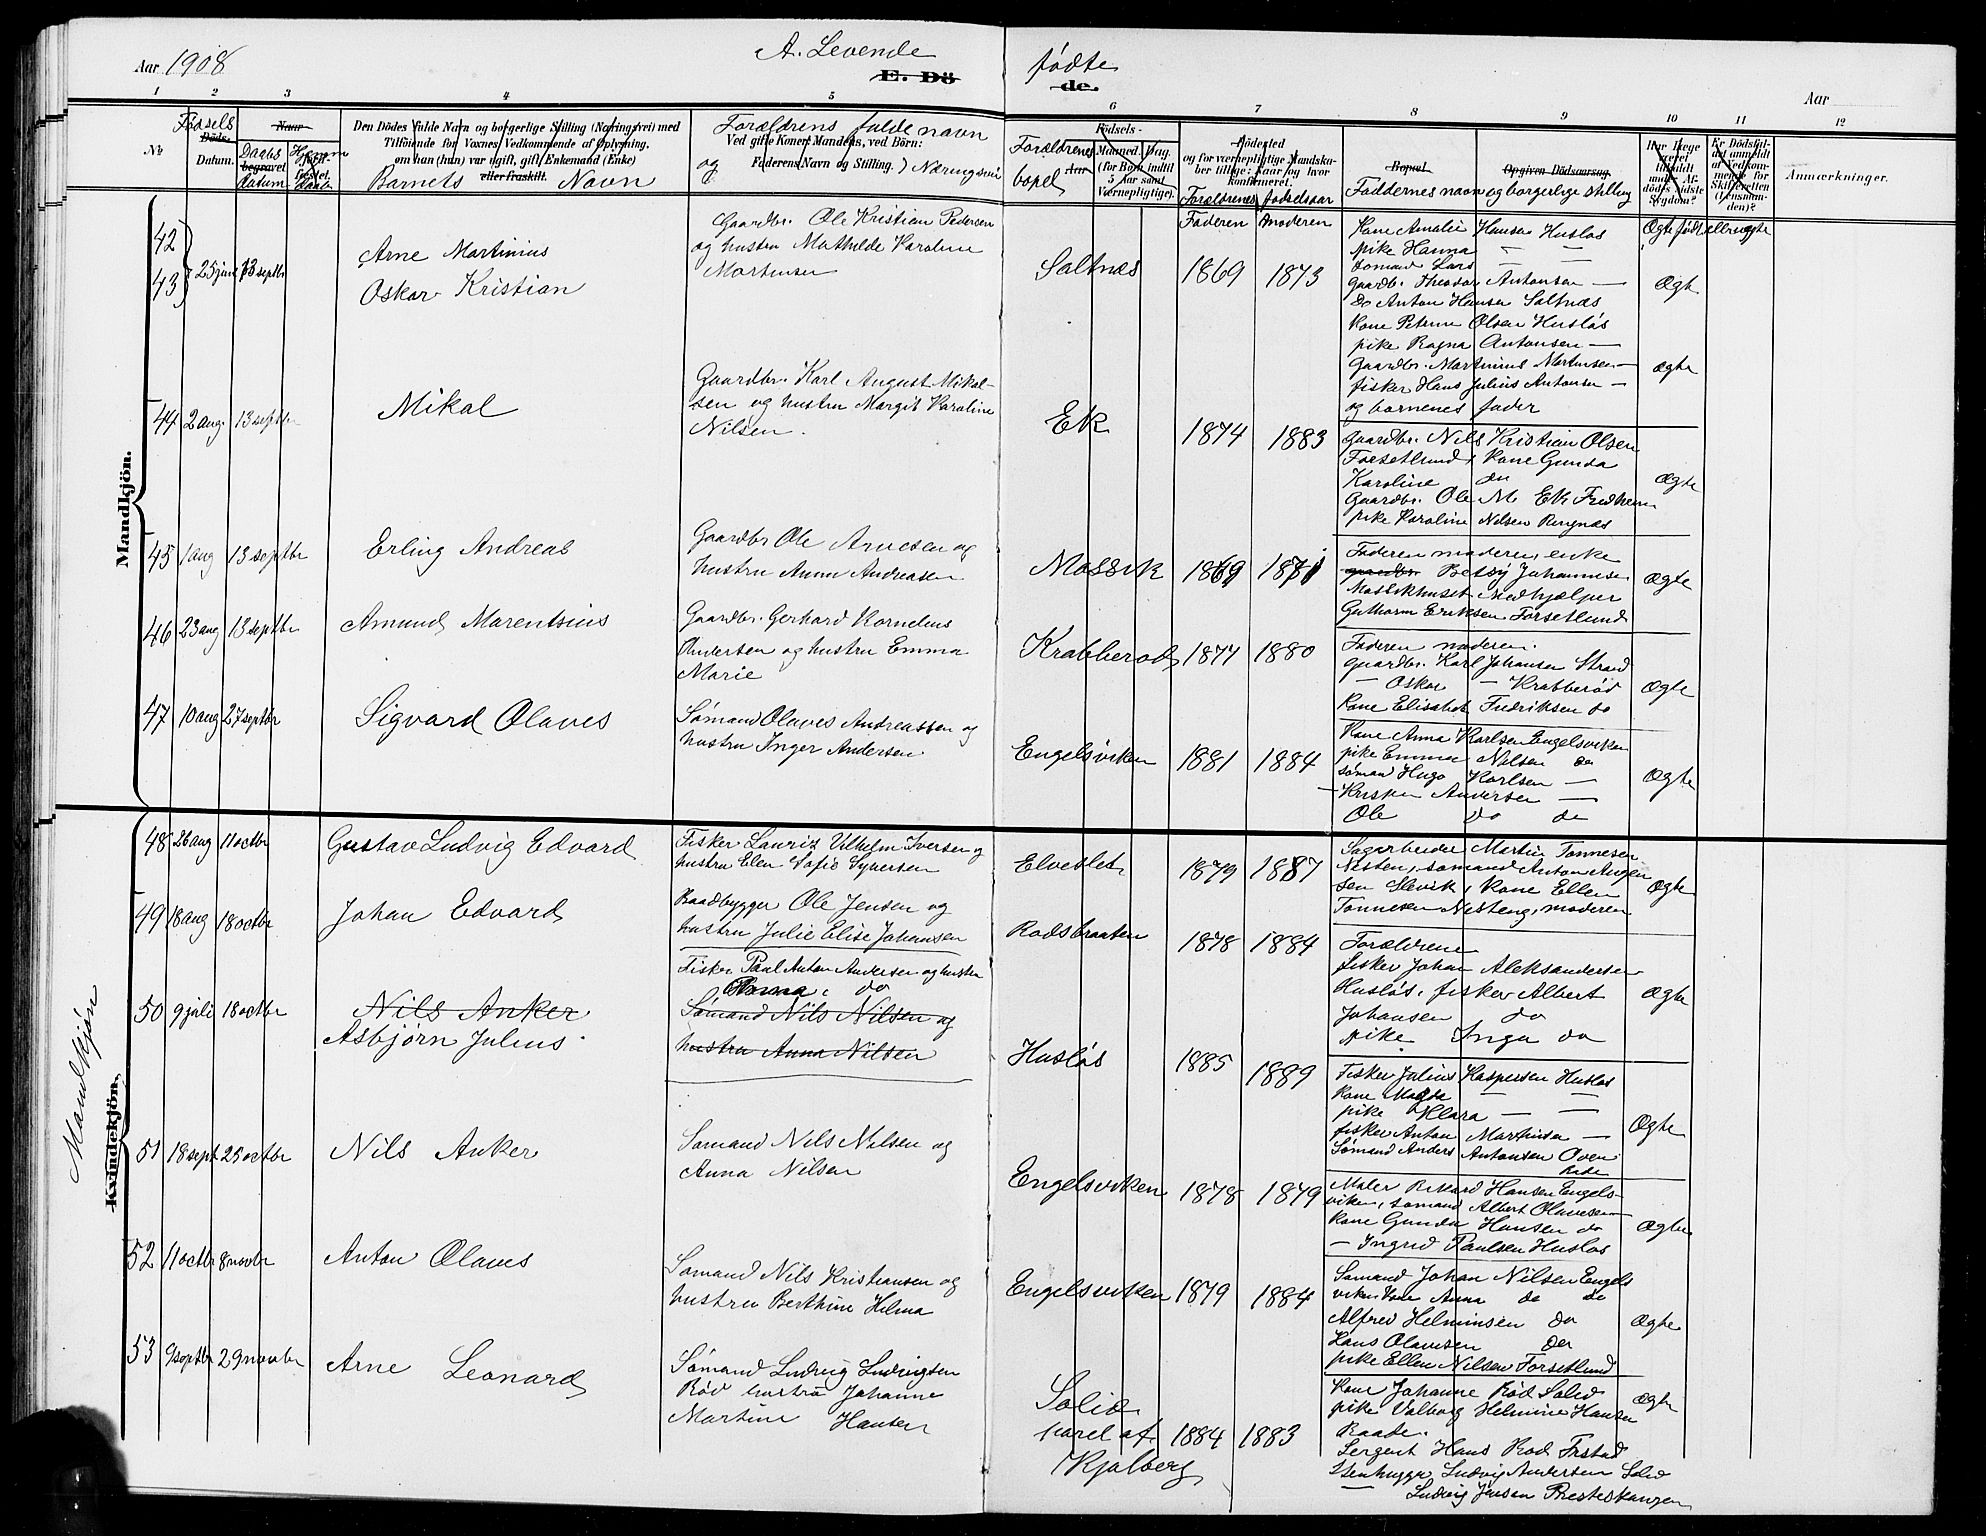 Aar 1908
A. Levende
E. Dö
fødte
de.
Aar
1 2 3 4 5 6 7 8 9 10 11 12
№
Fødsels
Döds-
Datum.
Naar
Daabs
begravet
datum
Hjemme
Den Dödes fulde Navn og borgerlige Stilling (Næringsvei) med
Tilföiende for Voxnes Vedkommende af Oplysning,
om han (hun) var ugift, gift, Enkemand (Enke)
eller fraskilt.
Barnets Navn
Forældrenes fulde navn
Ved gifte Koner: Mandens, ved Börn:
Faderens Navn og Stilling.
og Næringsvei
Forældrenes
bopel
Födsels-
Aar Maaned. Dag.
(for Börn indtil
5 Aar samt
Værnepligtige).
Födested
og for værnepligtige Mandska-
ber tillige: Naar og hvor
konfirmeret.
Forældrenes fødselsaar
Faderen Moderen
Bopæl.
Opgiven Dödsaarsag.
Faddernes navn og borgerlige stilling
Ægte født ell. uægte
Anmærkninger.
Mandkjön.
42
43
25 juni 13 septbr
Arne Martinius
Oskar Kristian
Gaardbr. Ole Kristian Pedersen
og hustru Mathilde Karoline
Mortensen
Saltnæs
1869 1873
Kone Amalie Hansen Husløs
pike Hanna — —
Sømand Lars —
Gaardbr. Theodor Antonsen —
Do Anton Hansen Saltnæs
Kone Petrine Olsen Husløs
pike Ragna Antonsen —
Gaardbr. Martinius Mortensen —
fisker Hans Julius Antonsen —
og barnenes fader
Ægte
ægte
44 2 aug. 13 septbr
Mikal
Gaardbr. Karl August Mikal-
sen og hustru Margit Karoline
Nilsen.
Ek
1874 1883
Gaardbr. Nils Kristian Olsen
Forsetlund, Kone Gunda
Karoline do
Gaardbr. Ole M Ek Fredheim
pike Karoline Nilsen Ringnæs
Ægte
45 1 aug 13 septbr
Erling Andreas
Gaardbr Ole Arnesen og
hustru Anna Andreasen
Mossvik
1869 1871
Faderen moderen, enke
gaardbr Betsy Johannesen
Mossikhuset medhjælper
Guthorm Eriksen Forsetlund
Ægte
46 23 aug 13 septbr
Amund Marentsius
Gaardbr. Gerhard Kornelius
Andersen og hustru Emma
Marie
Krabberød
1877 1880
Faderen moderen.
gaardbr. Karl Johansen Strand
— Oskar — Krabberød
Kone Elisabet Fredriksen do
Ægte
47 10 aug 27 septbr
Sigvard Olaves
Sømand Olaves Andreassen og
hustru Inger Andersen.
Engelsviken
1881 1884
Kone Anna Karlsen Engelsviken
pike Emma Nilsen do
sømand Hugo Karlsen —
— Kristen Andersen —
Ole do do
Ægte
Mandkjøn
Kvindekjön.
48 26 aug 11 octbr
Gustav Ludvig Edvard
Fisker Lauriz Vilhelm Iversen og
hustru Elen Sofie Syversen
Elveslet
1879 1887
Sagarbeider Martin Tonnesen
Nesten, sømand Anton Jørgen
sen Slevik, Kone Ellen
Tonnesen Nesteng, moderen
Ægte
49 18 aug 18 octbr
Johan Edvard
Baadbygger Ole Jensen og
hustru Julie Elise Johansen
Rødsbraaten
1878 1884
Forældrene
fisker Johan Aleksandersen
Husløs, fisker Albert
Johansen do
pike Inga do
Ægte
50 9 juli 18 octbr
Nils Anker
Asbjørn Julius
Fisker Paul Anton Andersen og hustru
Anna do
Sømand Nils Nilsen og
hustru Anna Nilsen
Husløs
1885 1889
Fisker Julius Kaspersen Husløs
Kone Magda — —
pike Klara — —
fisker Anton Martinsen —
Sømand Anders Antonsen Oven
Rade
Ægte
51 18 sept 25 octbr
Nils Anker
Sømand Nils Nilsen og
Anna Nilsen
Engelsviken
1878 1879
Maler Rikard Hansen Engels-
viken, sømand Albert Olavesen —
Kone Gunda Hansen do
— Ingrid Paulsen Husløs
Ægte
52 11 octbr 8 novbr
Anton Olaves
Sømand Nils Kristiansen og
hustru Berthine Helma
Engelsviken
1879 1884
Sømand Johan Nilsen Engels
viken Kone Anna do do
Alfred Helminsen do
Hans Olavesen do
pike Ellen Nilsen Forsetlund
Ægte
53 9 septbr 29 novbr
Arne Leonard
Sømand Ludvig Ludvigsen
Rød hustru Johanne
Martine Hansen
Solid
parcel af
Kjølberg
1884 1883
Kone Johanne Rød Solid
pike Valborg Helmine Hansen
Raade.
Sergent Hans Rød Frstad
Stenhugger Ludvig Andersen Solid
— Ludvig Jensen Presteskaugen
Ægte